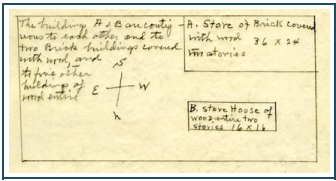 The buildings A & B are contig
uous to each other and to
two Brick buildings covered
with wood, and
to five other
buildings of
wood entire
S
E W
N
A. Store of Brick covered
with wood 36 x 24
two stories
B. Store House of
wood, entire two
stories 16 x 16